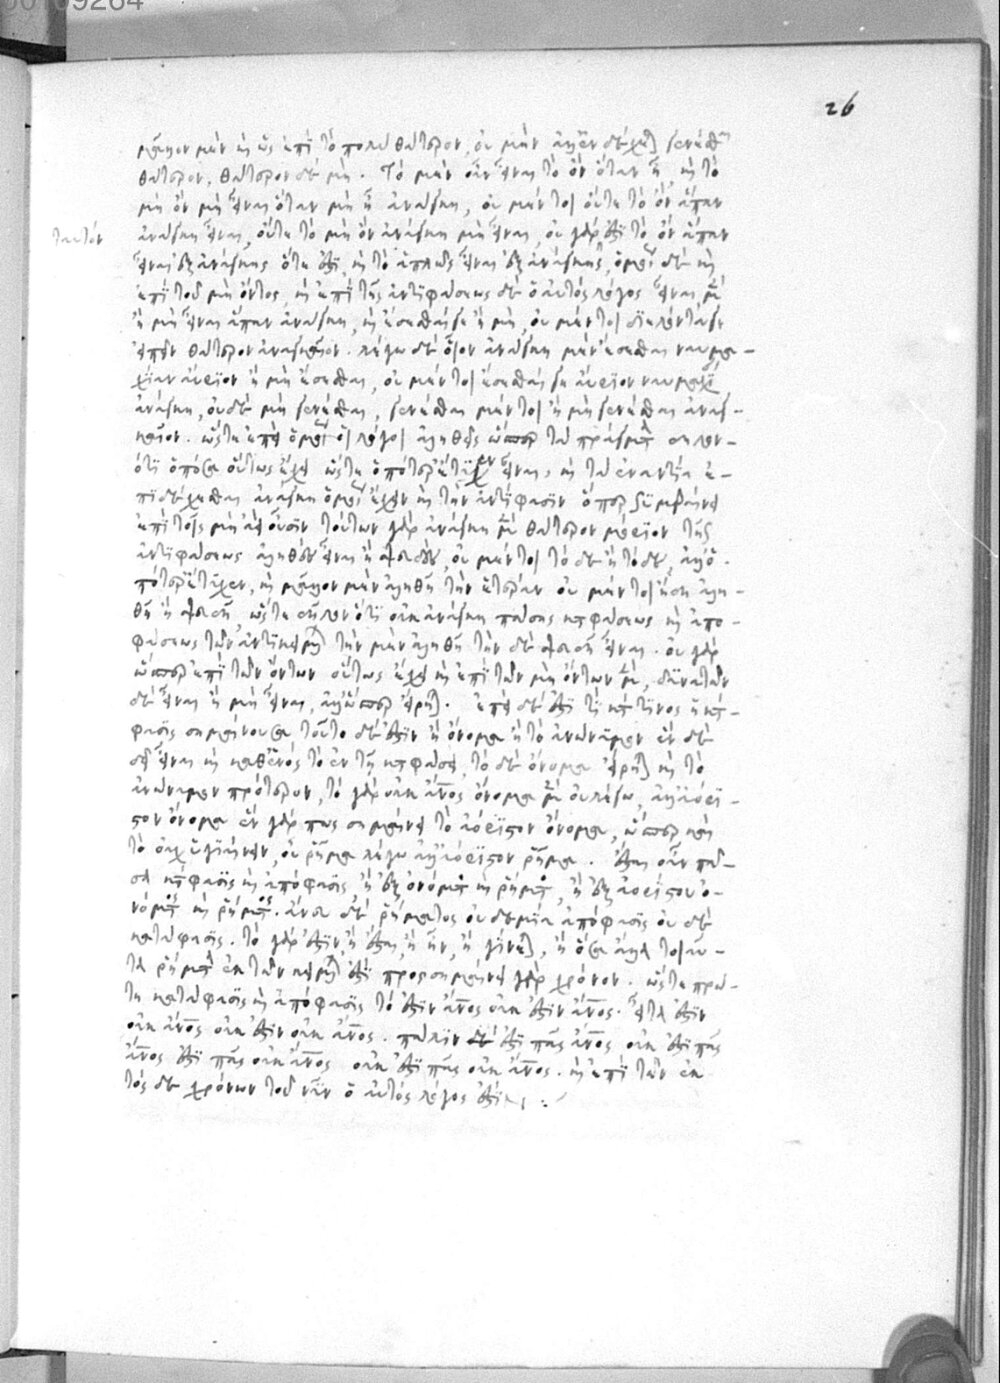 00109264
26
μᾶλλον μὲν καὶ ὡς ἐπὶ τὸ πολὺ θάτερον, οὐ μὴν ἀλλ' ἐνδέχεται γενέσθαι
θάτερον, θάτερον δὲ μή. Τὸ μὲν οὖν εἶναι τὸ ὂν ὅταν ᾖ, καὶ τὸ
μὴ ὂν μὴ εἶναι ὅταν μὴ ᾖ ἀνάγκη, οὐ μέντοι οὔτε τὸ ὂν ἅπαν
ταυτὸν
ἀνάγκη εἶναι, οὔτε τὸ μὴ ὂν ἀνάγκη μὴ εἶναι, οὐ γάρ ἐστι τὸ ὂν ἅπαν
εἶναι ἐξ ἀνάγκης ὅτε ἐστὶ, καὶ τὸ ἁπλῶς εἶναι ἐξ ἀνάγκης, ὁμοίως δὲ καὶ
ἐπὶ τοῦ μὴ ὄντος, καὶ ἐπὶ τῆς ἀντιφάσεως δὲ ὁ αὐτὸς λόγος εἶναι μὲν
ἢ μὴ εἶναι ἅπαν ἀνάγκη, καὶ ἔσεσθαί γε ἢ μὴ, οὐ μέντοι διελόντα γε
εἰπεῖν θάτερον ἀναγκαῖον. λέγω δὲ οἷον ἀνάγκη μὲν ἔσεσθαι ναυμα-
χίαν αὔριον ἢ μὴ ἔσεσθαι, οὐ μέντοι ἔσεσθαί γε αὔριον ναυμαχίαν
ἀνάγκη, οὐδὲ μὴ γενέσθαι, γενέσθαι μέντοι ἢ μὴ γενέσθαι ἀναγ-
καῖον. ὥστε ἐπεὶ ὁμοίως οἱ λόγοι ἀληθεῖς ὥσπερ τὰ πράγματα δῆλον-
ὅτι ὁπόσα οὕτως ἔχει ὥστε ὁπότερ' ἔτυχεν εἶναι, καὶ τὰ ἐναντία ἐ-
πιδέχεσθαι ἀνάγκη ὁμοίως ἔχειν καὶ τὴν ἀντίφασιν ὅπερ συμβαίνει
ἐπὶ τοῖς μὴ ἀεὶ οὖσιν τούτων γὰρ ἀνάγκη μὲν θάτερον μόριον τῆς
ἀντιφάσεως ἀληθὲς εἶναι ἢ ψεῦδος, οὐ μέντοι τόδε ἢ τόδε, ἀλλ' ὁ-
πότερ' ἔτυχεν, καὶ μᾶλλον μὲν ἀληθῆ τὴν ἑτέραν οὐ μέντοι ἤδη ἀλη-
θῆ ἢ ψευδῆ, ὥστε δῆλον ὅτι οὐκ ἀνάγκη πάσης καταφάσεως καὶ ἀπο-
φάσεως τῶν ἀντικειμένων τὴν μὲν ἀληθῆ τὴν δὲ ψευδῆ εἶναι. οὐ γὰρ
ὥσπερ ἐπὶ τῶν ὄντων οὕτως ἔχει καὶ ἐπὶ τῶν μὴ ὄντων μὲν, δυνατῶν
δὲ εἶναι ἢ μὴ εἶναι, ἀλλ' ὥσπερ εἴρηται. ἐπεὶ δέ ἐστι τὶ κατὰ τινὸς ἡ κατά-
φασις σημαίνουσα τοῦτο δέ ἐστιν ἢ ὄνομα ἢ τὸ ἀνώνυμον ἓν δὲ
δεῖ εἶναι καὶ καθ' ἑνὸς τὸ ἐν τῇ καταφάσει, τὸ δὲ ὄνομα εἴρηται καὶ τὸ
ἀνώνυμον πρότερον, τὸ γὰρ οὐκ ἄνθρωπος ὄνομα μὲν οὐ λέγω, ἀλλ' ἀόρι-
στον ὄνομα ἓν γάρ πως σημαίνει τὸ ἀόριστον ὄνομα, ὥσπερ καὶ
τὸ οὐχ ὑγιαίνειν, οὐ ῥῆμα λέγω ἀλλ' ἀόριστον ῥῆμα. ἔσται οὖν πᾶ-
σα κατάφασις καὶ ἀπόφασις ἢ ἐξ ὀνόματος καὶ ῥήματος, ἢ ἐξ ἀορίστου ὀ-
νόματος καὶ ῥήματος. ἄνευ δὲ ῥήματος οὐδεμία ἀπόφασις οὐδὲ
κατάφασις. τὸ γὰρ ἔστιν, ἢ ἔσται, ἢ ἦν, ἢ γίνεται, ἢ ὅσα ἄλλα τοιαῦ-
τα ῥήματα ἐκ τῶν κειμένων ἐστὶ προσσημαίνει γὰρ χρόνον. ὥστε πρώ-
τη κατάφασις καὶ ἀπόφασις τὸ ἔστιν ἄνθρωπος οὐκ ἔστιν ἄνθρωπος. εἶτα ἔστιν
οὐκ ἄνθρωπος οὐκ ἔστιν οὐκ ἄνθρωπος. πάλιν ἔστι πᾶς ἄνθρωπος οὐκ ἔστι πᾶς
ἄνθρωπος ἔστι πᾶς οὐκ ἄνθρωπος οὐκ ἔστι πᾶς οὐκ ἄνθρωπος. καὶ ἐπὶ τῶν ἐκ-
τὸς δὲ χρόνων τοῦ νῦν ὁ αὐτὸς λόγος ἐστίν :